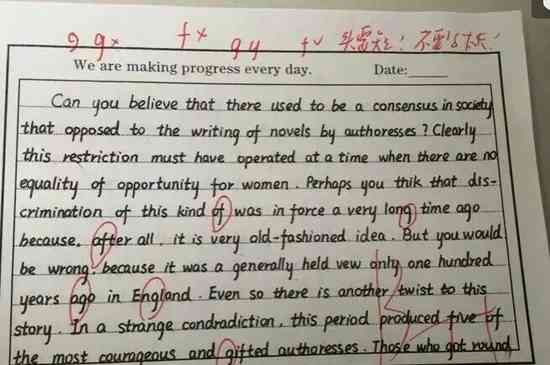 g gx fx gy fv
We are making progress every day. Date:
Can you believe that there used to be a consensus in society
that opposed to the writing of novels by authoresses? Clearly
this restriction must have operated at a time when there are no
equality of opportunity for women. Perhaps you thik that dis-
crimination of this kind of was in force a very long time ago
because, after all, it is very old-fashioned idea. But you would
be wrong, because it was a generally held vew only one hundred
years ago in England. Even so there is another twist to this
story. In a strange condradiction, this period produced five of
the most courageous and gifted authoresses. Those who got round